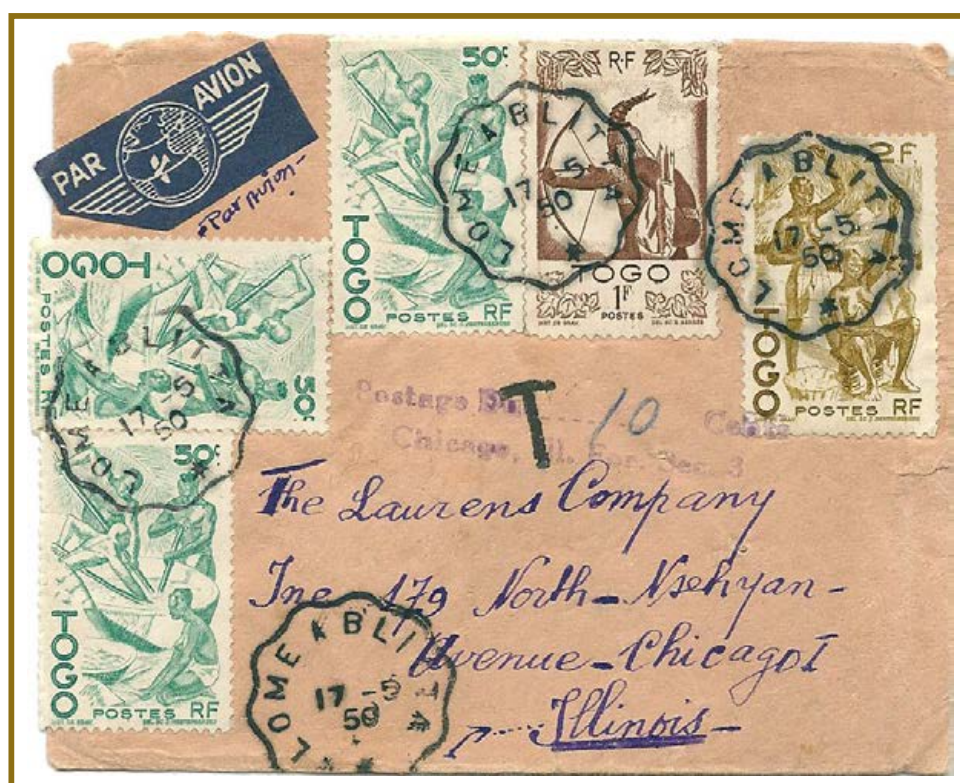 PAR AVION
-Par avion-
50c
TOGO
POSTES RF
RF
TOGO
1F
POSTES
LOME A BLITTA
17-5
50
2F.
TOGO
POSTES RF
LOME A BLITTA
17-5
50
TOGO
50c
POSTES
LOME A BLITTA
17-5
50
50c
TOGO
POSTES RF
Postage Due
T
10
Cents
Chicago, Ill. For. Sec. 3
The Laurens Company
Inc 179 North-Nsehyan-
Avenue-Chicago I
Illinois-
LOME A BLITTA
17-5
50